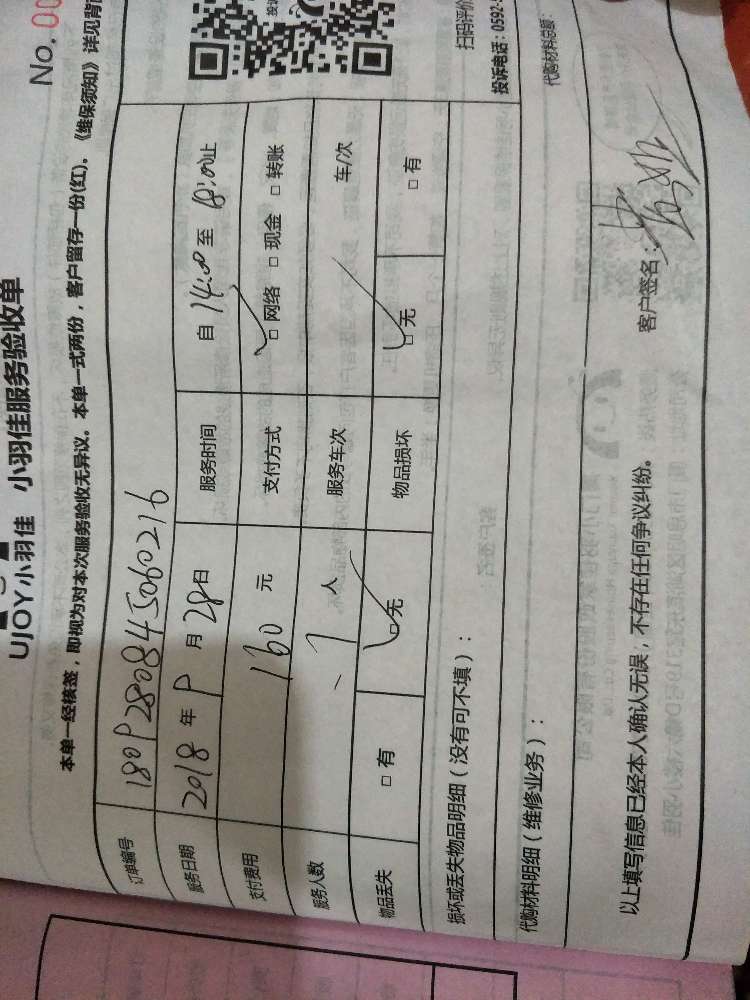 No.00
UJOY小羽佳 小羽佳服务验收单
本单一经核签，即视为对本次服务验收无异议。本单一式两份，客户留存一份(红)。《维保须知》详见背面
订单编号 1809280845060216
服务日期 2018年9月28日 服务时间 自14:00至18:00止
支付费用 160元 支付方式 □网络 □现金 □转账
服务人数 1人 服务车次 车/次
物品丢失 □有 □无 物品损坏 □无 □有
损坏或丢失物品明细（没有可不填）：
扫码评价
投诉电话：0592-
代购材料明细（维修业务）：
代购材料总额：
以上填写信息已经本人确认无误，不存在任何争议纠纷。
客户签名：